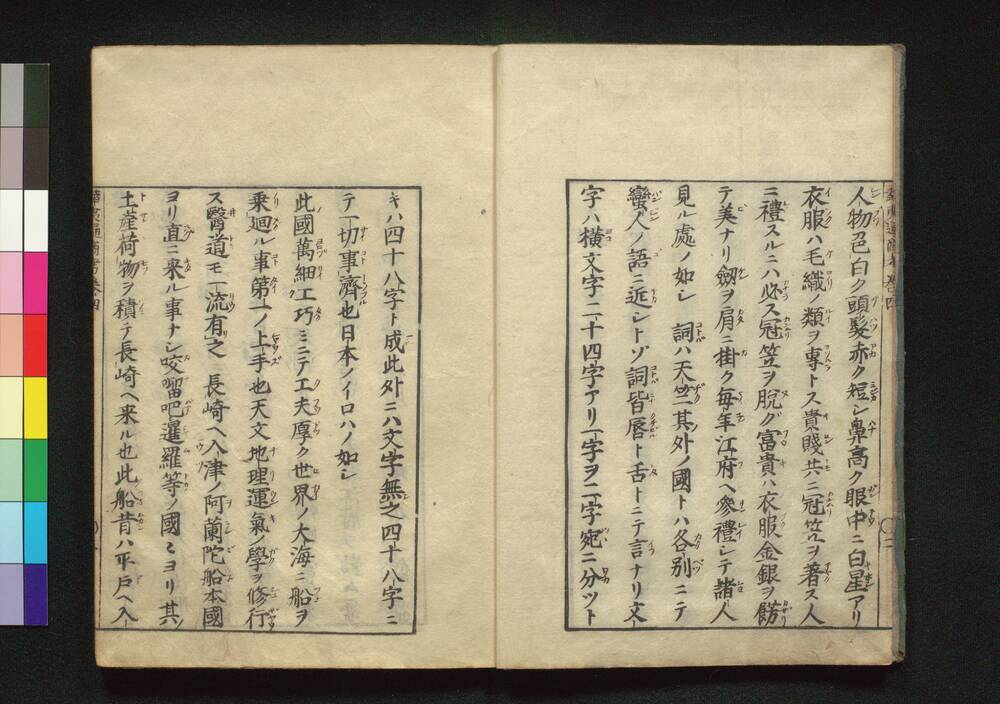 人物色白ク頭髮赤ク短シ鼻高ク眼中ニ白星アリ
衣服ハ毛織ノ類ヲ專トス貴賤共ニ冠笠ヲ著ス人
ニ禮スルニハ必ス冠笠ヲ脫グ富貴ハ衣服金銀ヲ餝
テ美ナリ劔ヲ肩ニ掛ク毎年江府ヘ參禮シテ諸人
見ル處ノ如シ 詞ハ天竺其外ノ國トハ各別ニテ
蠻人ノ語ニ近シトゾ詞皆唇ト舌トニテ言ナリ文
字ハ橫文字二十四字アリ一字ヲ二字宛ニ分ツト
キハ四十八字ト成此外ニハ文字無之四十八字ニ
テ一切事濟也日本ノイロハノ如シ
此國萬細工巧ミニテ工夫厚ク世界ノ大海ニ船ヲ
乘廻ル事第一ノ上手也天文地理運氣ノ學ヲ修行
ス醫道モ一流有之 長崎ヘ入津ノ阿蘭陀船本國
ヨリ直ニ来ル事ナシ咬𠺕吧暹羅等ノ國々ヨリ其
土產荷物ヲ積テ長崎ヘ来ル也此船昔ハ平戶ヘ入
華夷通商考卷四